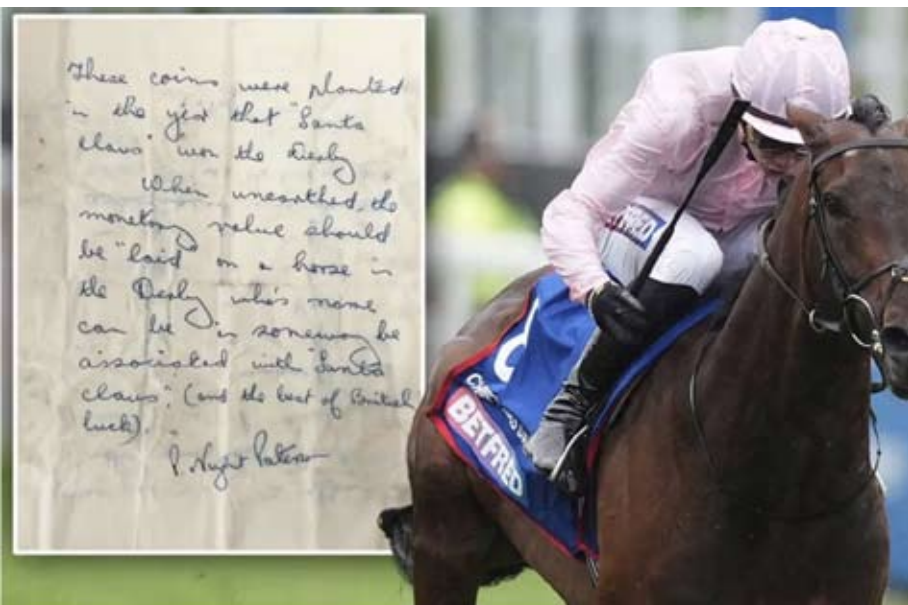 These coins were planted
in the year that "Santa
Claus" won the Derby
When unearthed, the
monetary value should
be "laid on a horse in
the Derby who's name
can be in someway be
associated with "Santa
Claus". (and the best of British
luck).
BETFRED